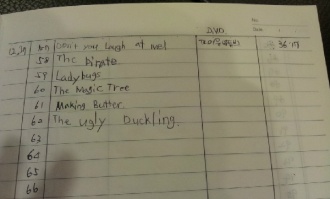 No.
DVD
57 Don't you laugh at me!
58 The pirate
59 Ladybugs
60 The Magic Tree
61 Making Butter
62 The ugly Duckling.
63
64
65
66